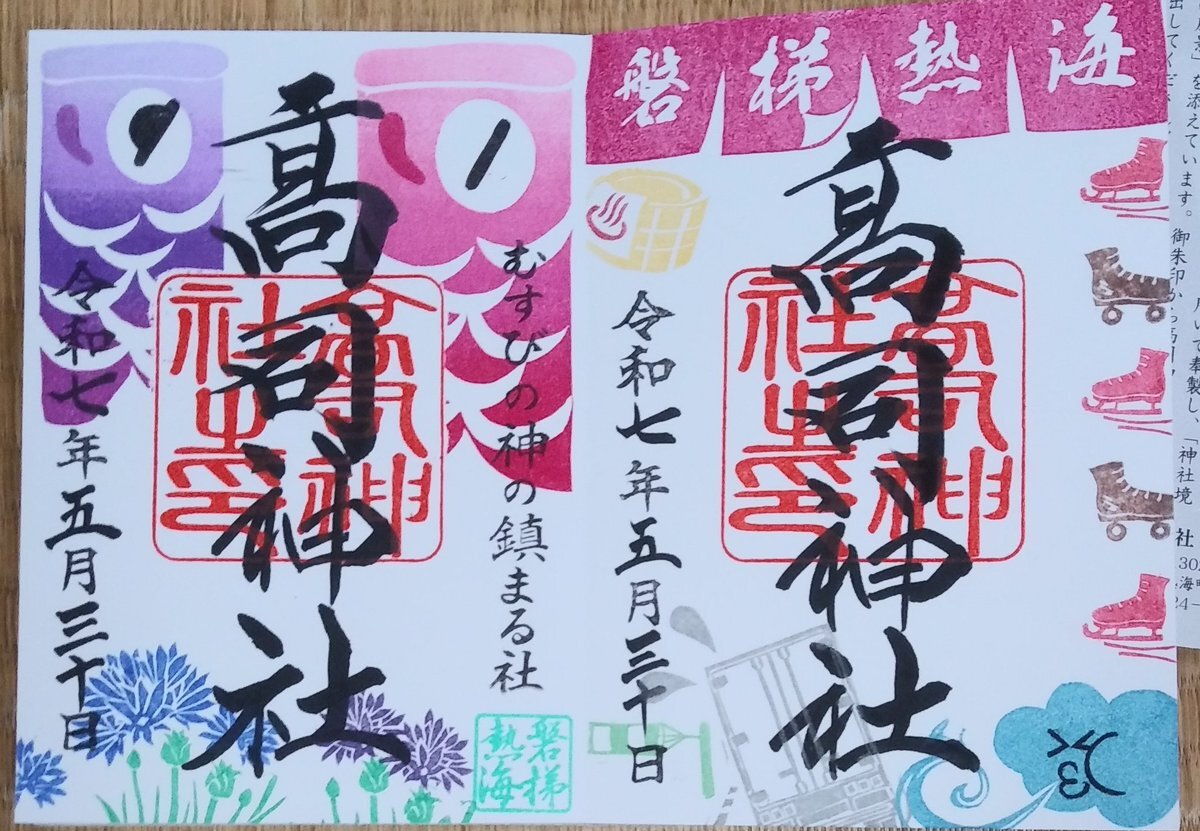 磐梯熱海
髙司神社
高司神社之印
令和七年五月三十日
むすびの神の鎮まる社
磐梯熱海
髙司神社
高司神社之印
令和七年五月三十日
て奉製し、「神社境
を添えています。御朱印か
出してくだ
社